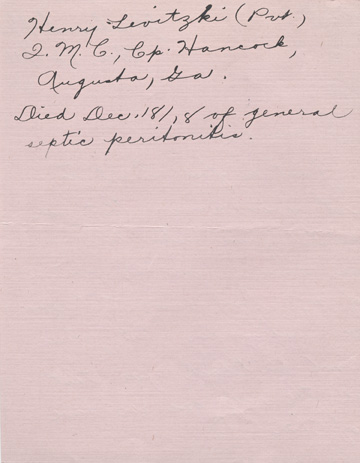 Henry Levitzki (Pvt.)
Q. M. C., Cp. Hancock,
Augusta, Ga.
Died Dec. 18/18 of general
septic peritonitis.